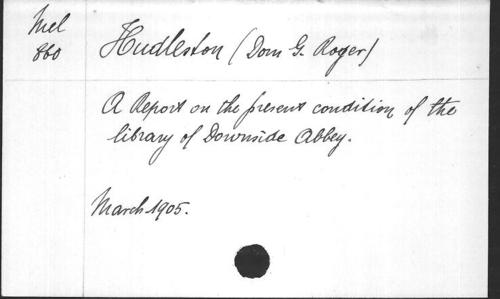 Mel
860
Hudleston (Dom G. Roger)
A Report on the present condition of the
library of Downside Abbey.
March 1905.